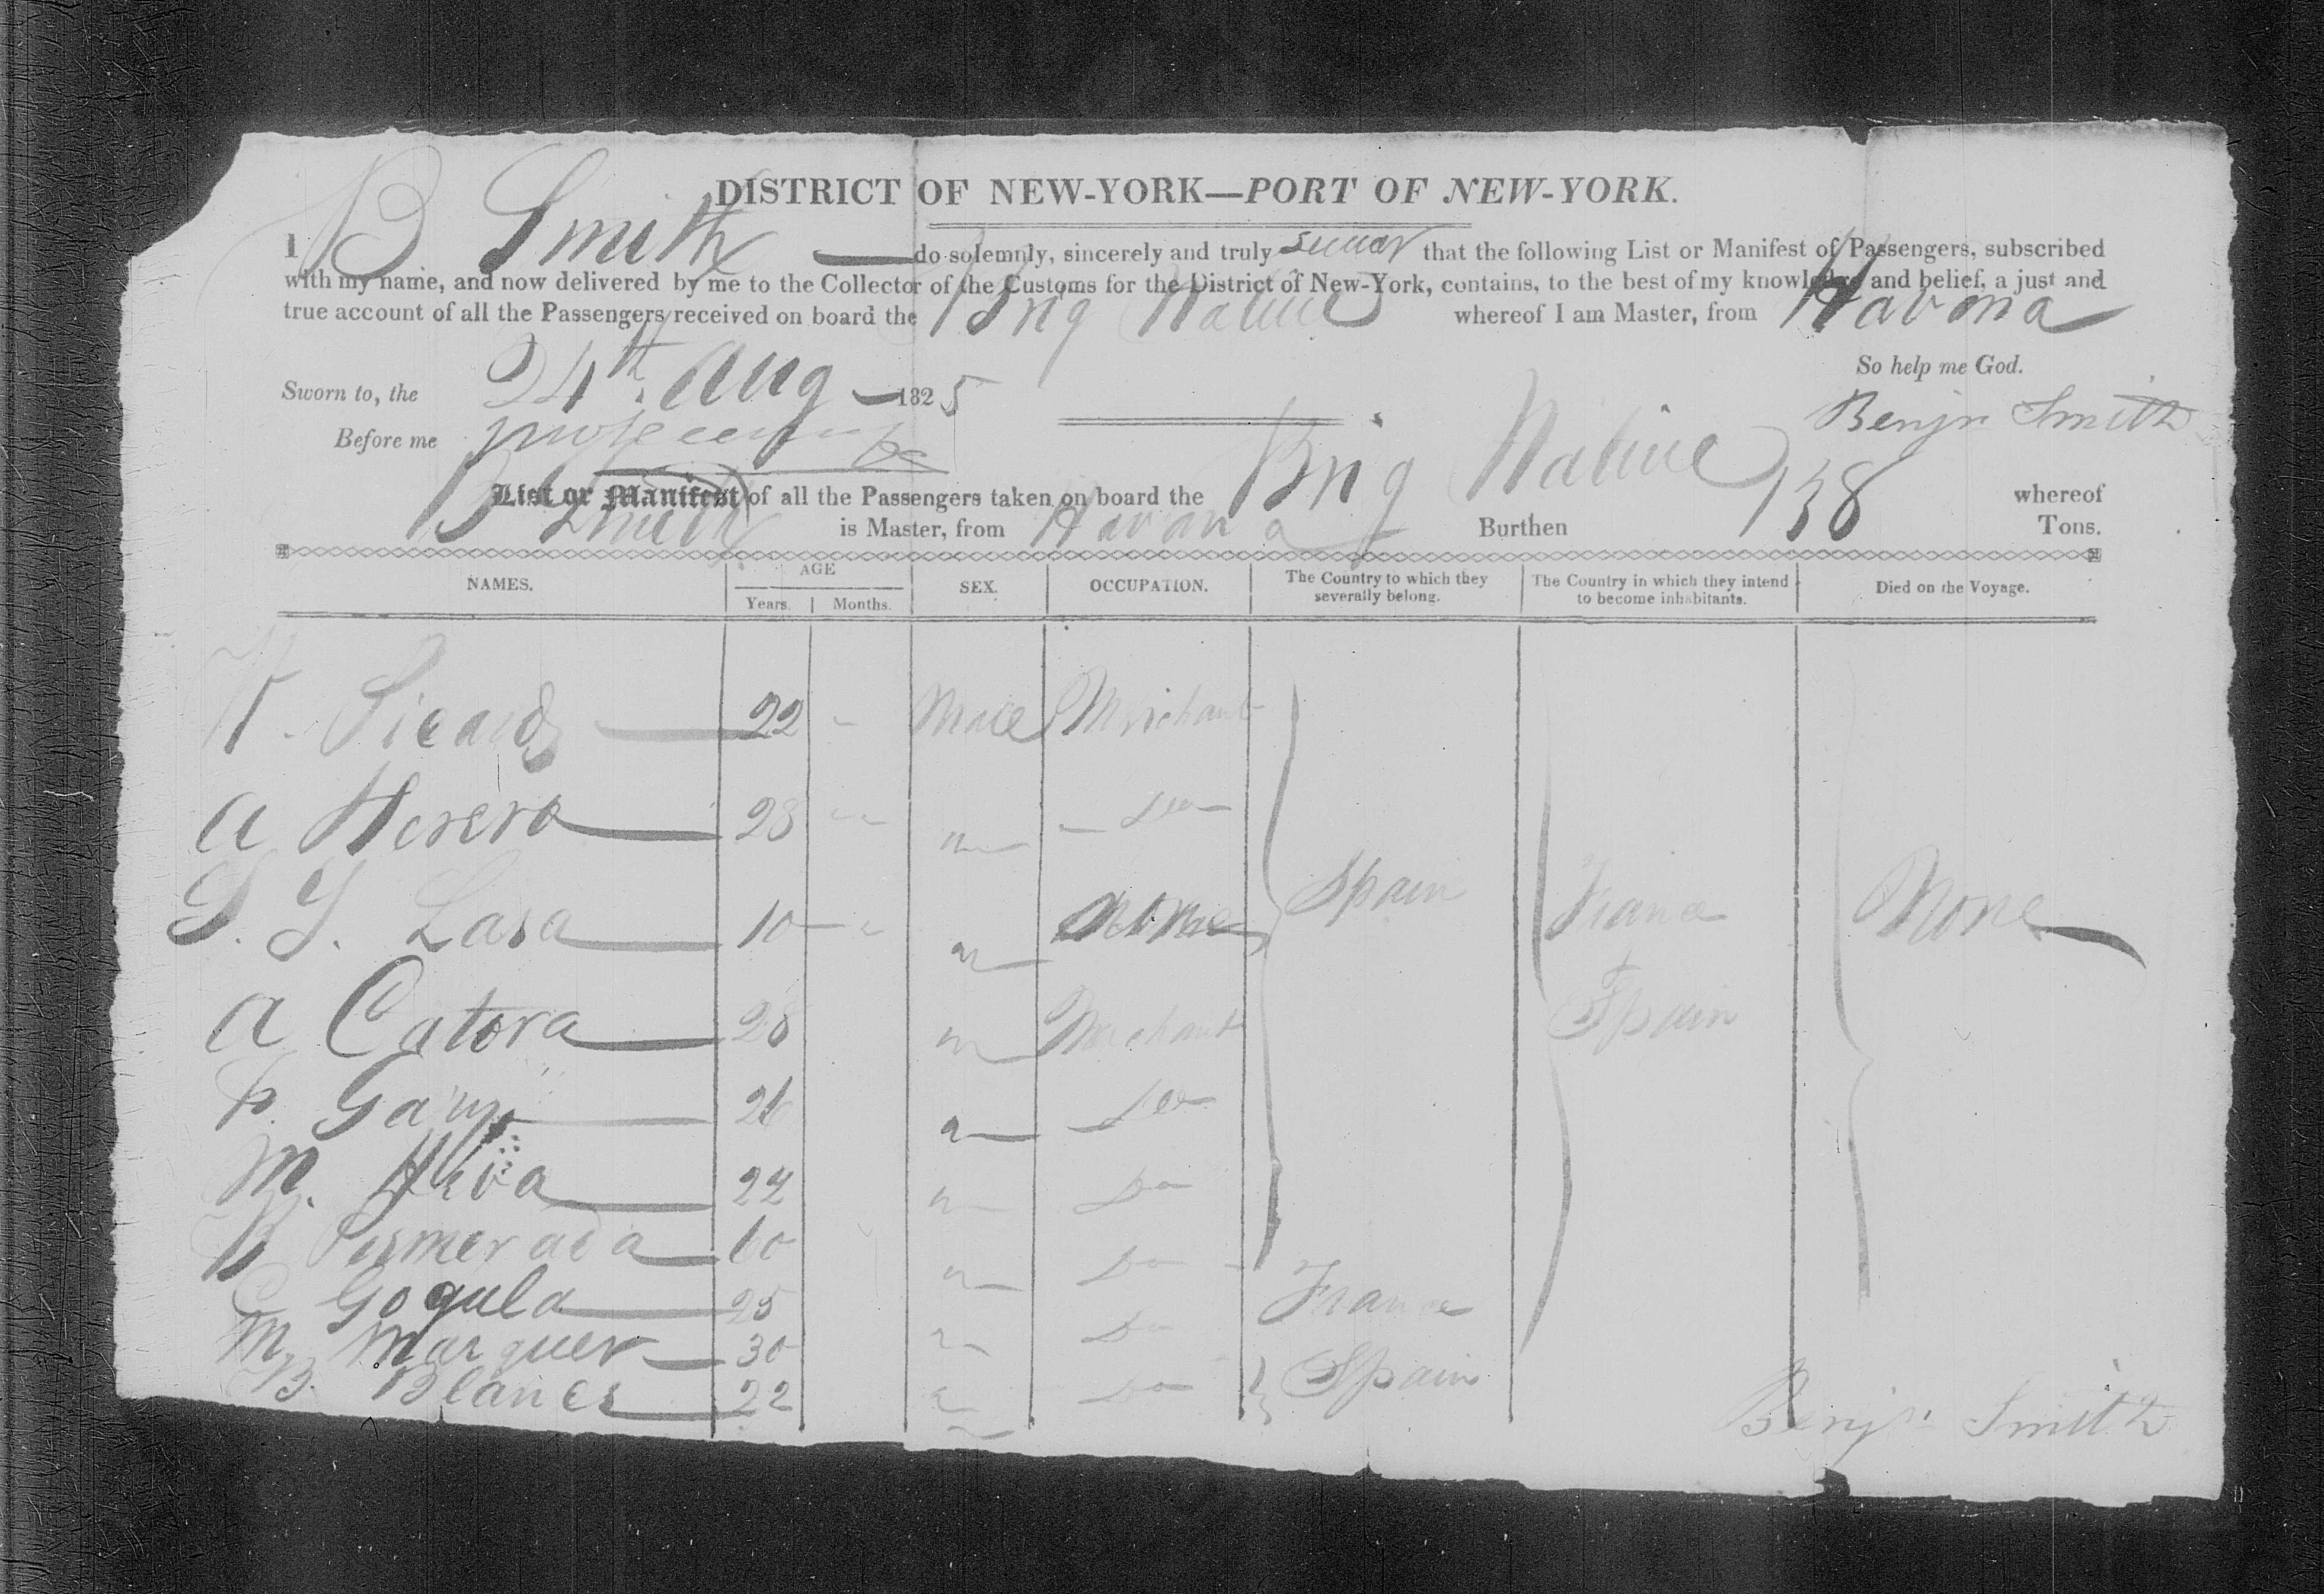 DISTRICT OF NEW-YORK—PORT OF NEW-YORK.
I B Smith do solemnly, sincerely and truly swear that the following List or Manifest of Passengers, subscribed
with my name, and now delivered by me to the Collector of the Customs for the District of New-York, contains, to the best of my knowledge and belief, a just and
true account of all the Passengers received on board the Brig Native whereof I am Master, from Havana
So help me God.
Sworn to, the 24th Aug 1825
Benjn Smith
Before me
List or Manifest of all the Passengers taken on board the Brig Native whereof
B Smith is Master, from Havana Burthen 138 Tons.
NAMES. AGE Years. Months. SEX. OCCUPATION. The Country to which they severally belong. The Country in which they intend to become inhabitants. Died on the Voyage.
22 Male Merchant
A Herera 28 m Do
Lasa 10 m None Spain France None
A Catora 28 m Merchant Spain
26 m Do
M. 22 m Do
60 m Do
Gogula 25 m Do France
M Marquer 30 m Do Spain
B. Blanco 22
Benjn Smith